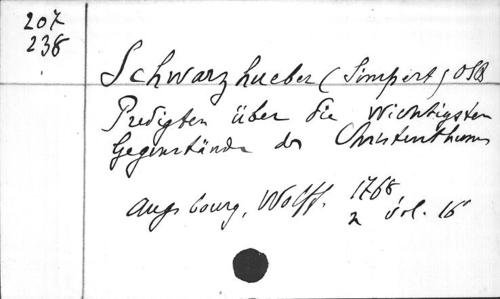 207
238
Schwarzhueber (Simpert) OSB
Predigten über die wichtigsten
Gegenstände des Christenthums
Augsbourg, Wolff. 1768
2 vol. 16°